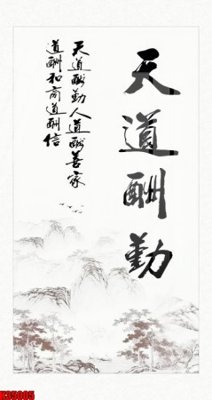 天道酬勤
天道酬勤人道酬善家
道酬和商道酬信